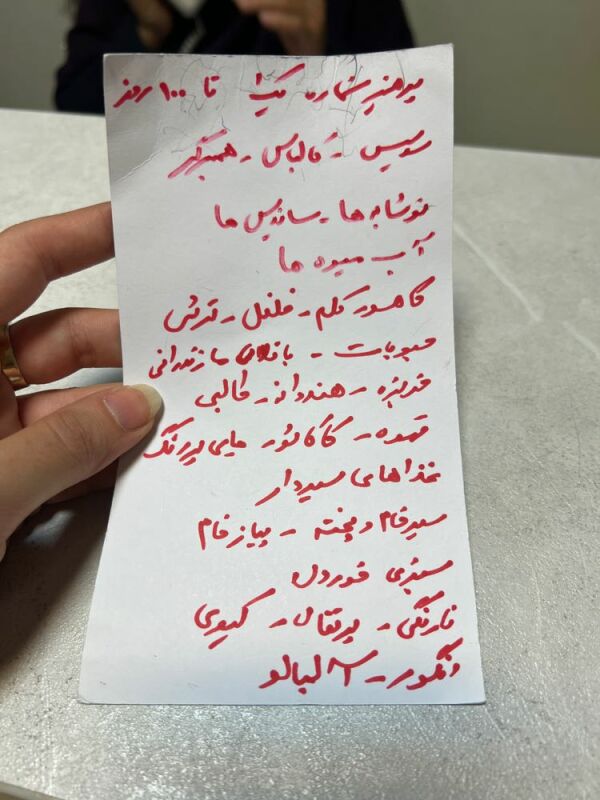 پرهیز شماره یک تا ۱۰۰ روز
سوسیس - کالباس - همبرگر
نوشابه ها - ساندیس ها
آب میوه ها
کاهو - کلم - فلفل - ترشی
حبوبات - باقلای مازندرانی
خربزه - هندوانه - طالبی
قهوه - کاکائو - چای پررنگ
غذاهای سیردار
سیر خام و پخته - پیاز خام
سبزی خوردن
نارنگی - پرتقال - کیوی
انگور - آلبالو